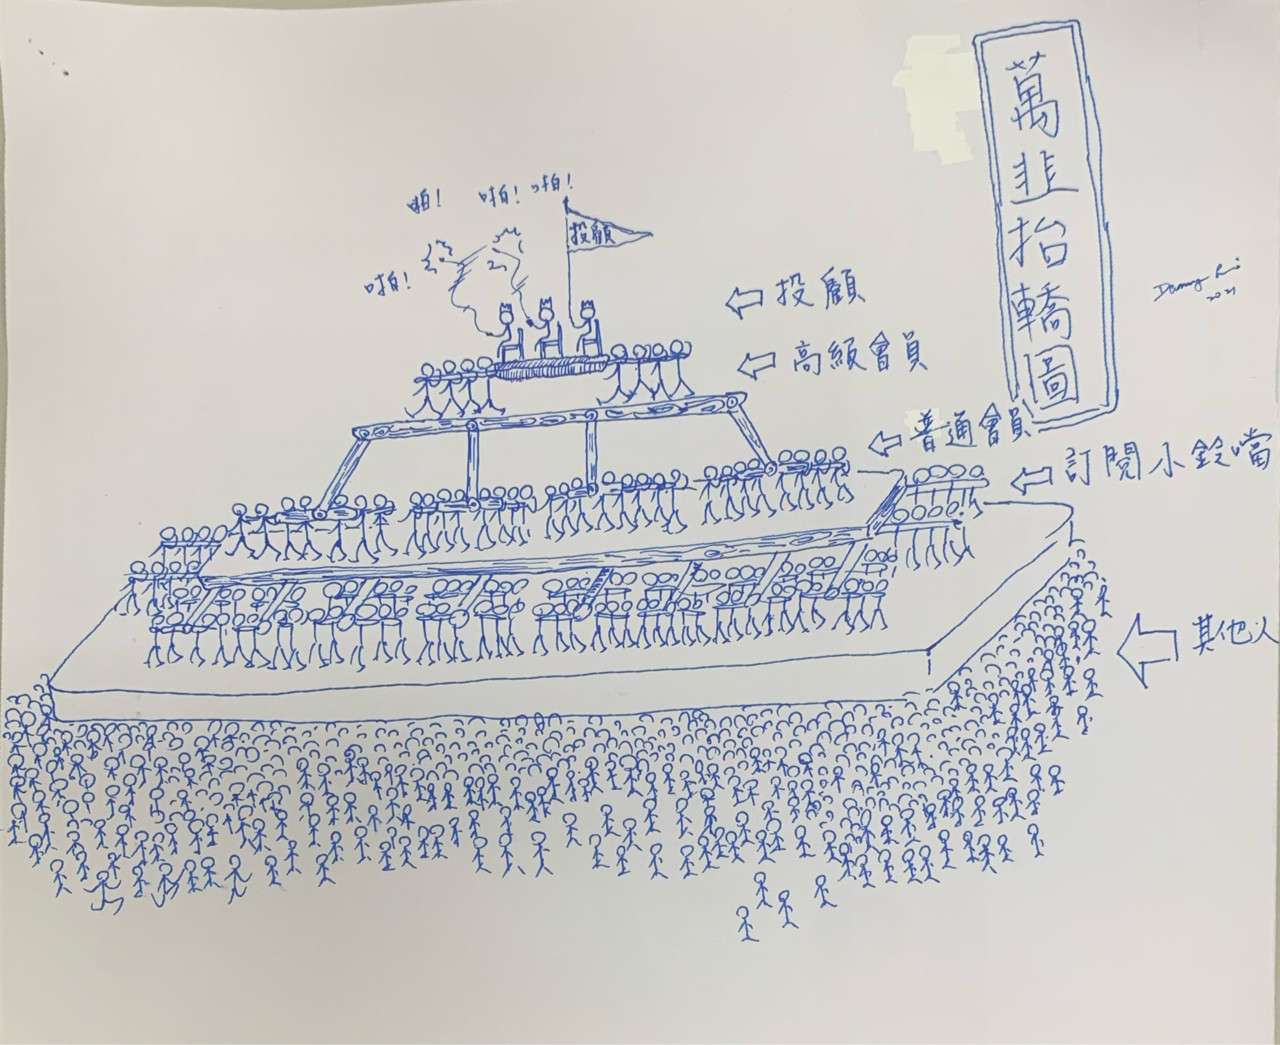 萬韭抬轎圖
啪！
啪！啪！
啪！
投顧
投顧
高級會員
普通會員
訂閱小鈴噹
其他人
2021